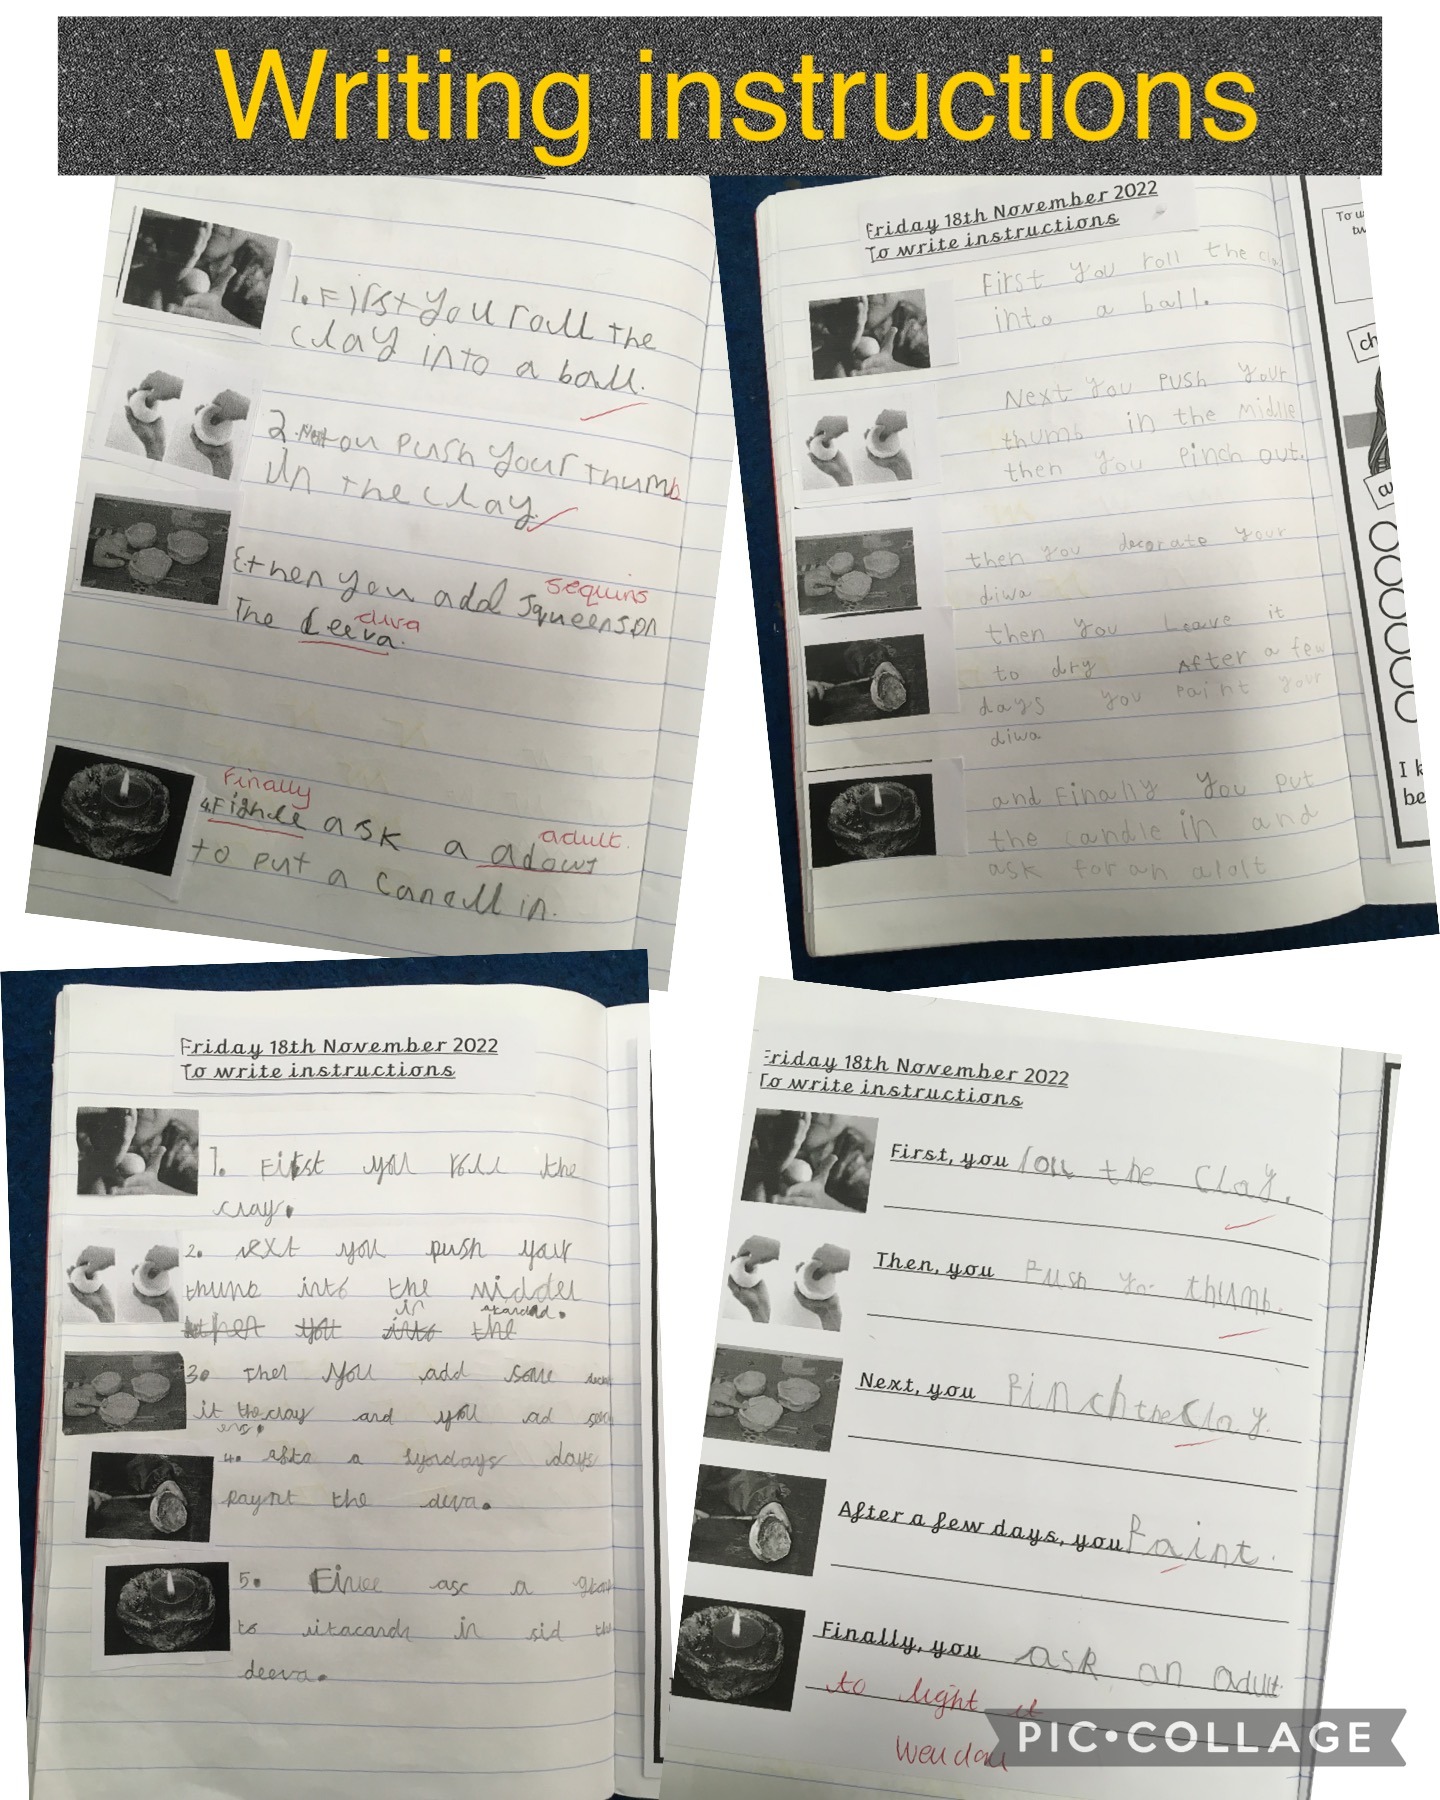 Writing instructions
1. First you roll the
clay into a ball.
2. Next you push your thumb
in the clay.
then you add
sequins
The deeva.
diva
Finally
ask a
adult.
to put a in.
Friday 18th November 2022
To write instructions
First you roll the
into a ball.
Next you push your
thumb in the middle
then you pinch out.
then you decorate your
diwa
then you leave it
to dry After a few
days you paint your
diwa
and Finally you put
the candle in and
ask for an
To
ch
I k
be
Friday 18th November 2022
To write instructions
1. First you roll the
clay.
2. next you push your
thumb into the
in
then you into the
3. Then you add some
it the clay and you ad
4. a days
paynt the deva.
5. a
to in sid
deeva.
Friday 18th November 2022
To write instructions
First, you roll the clay.
Then, you Push your thumb.
Next, you Pinch the clay.
After a few days, you Paint.
Finally, you ask an adult
to light it
PIC•COLLAGE